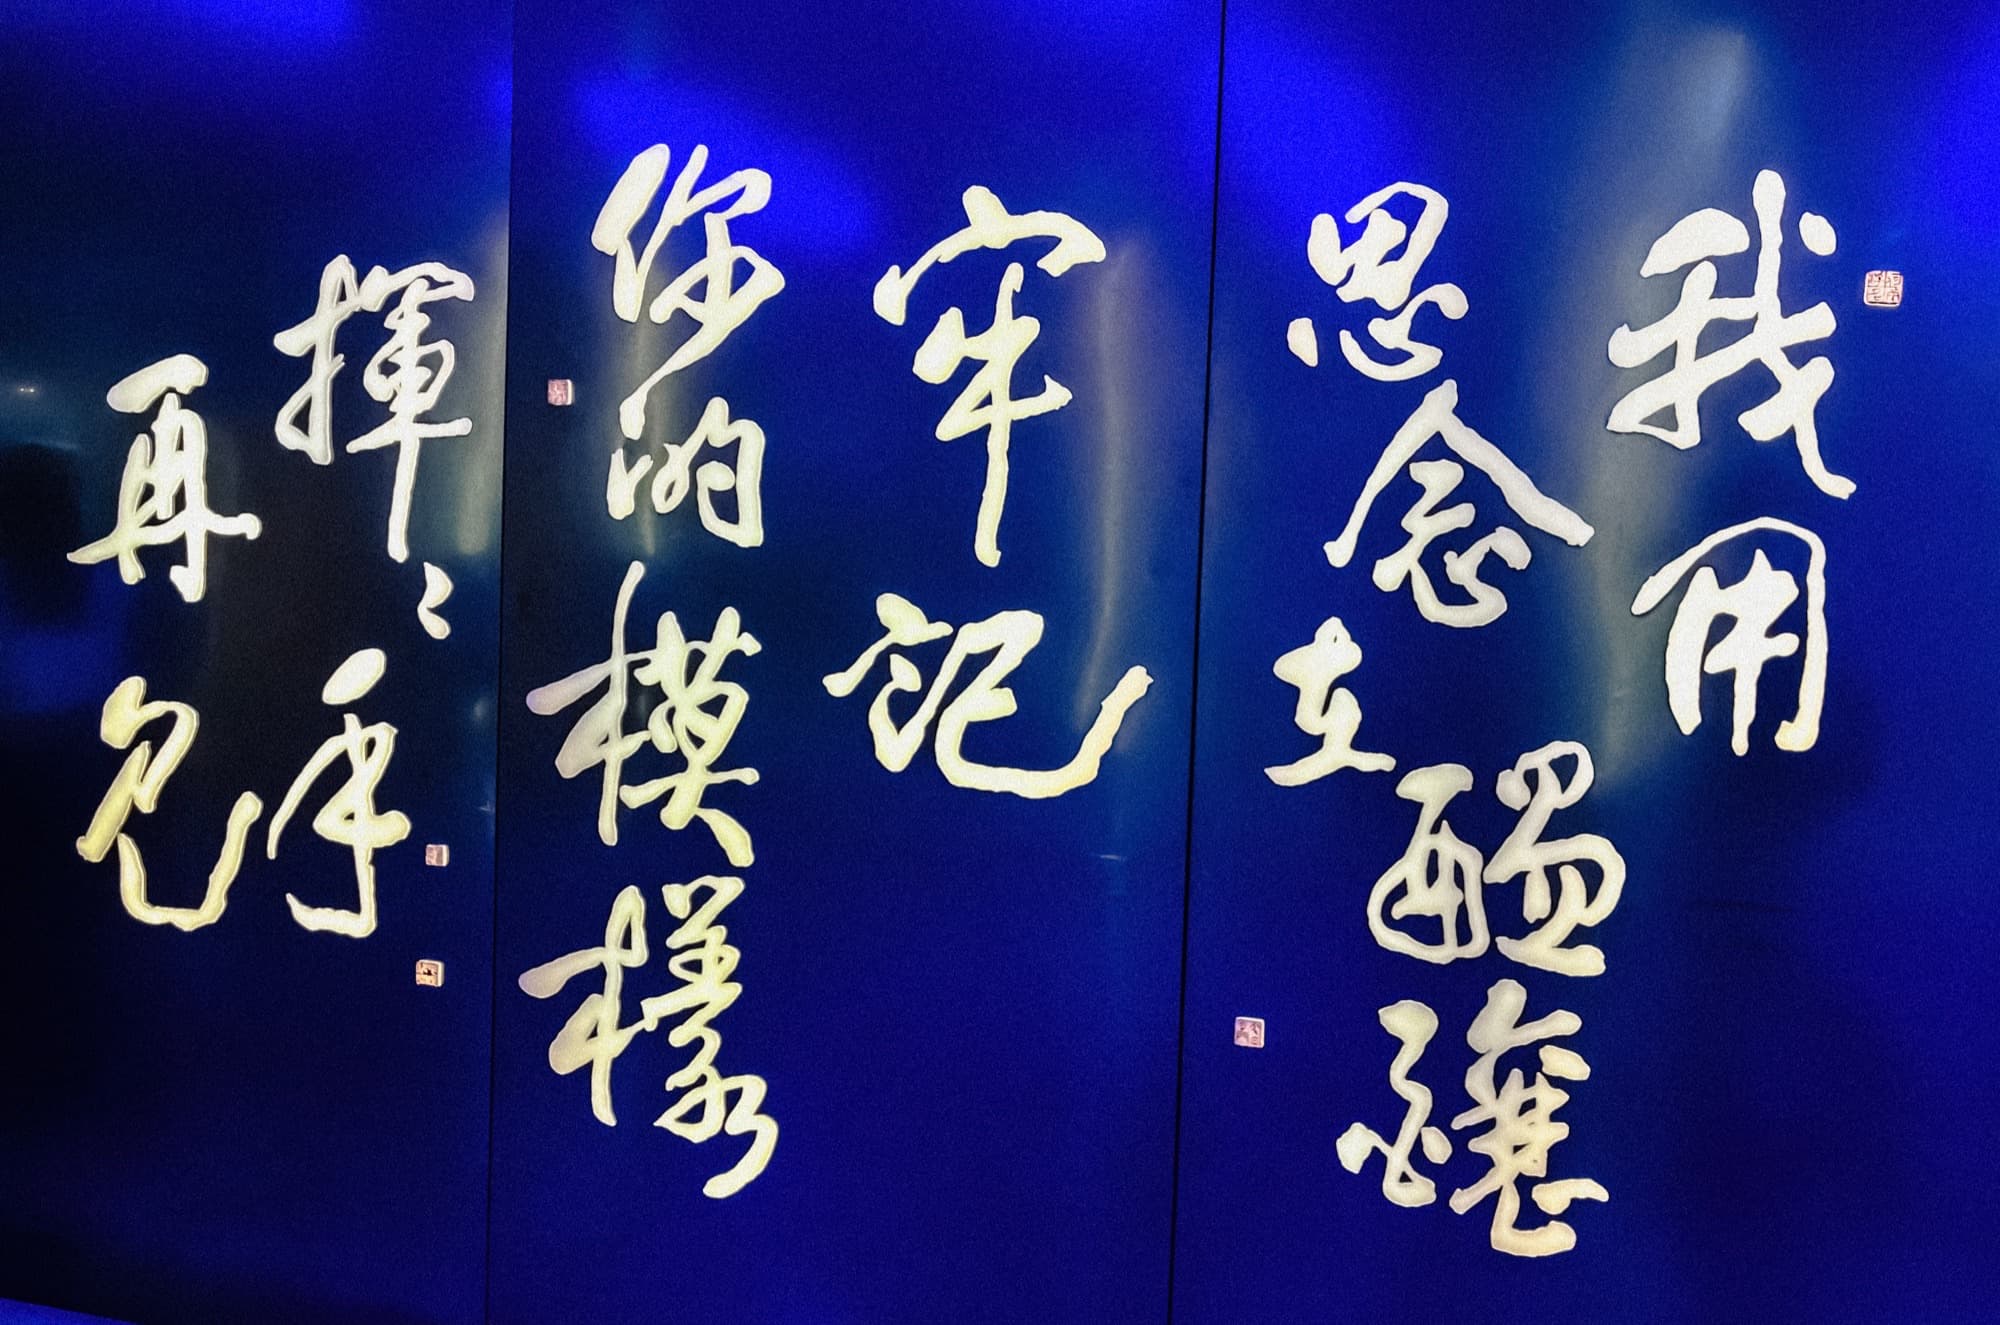 我用
思念在醞釀
牢記
你的模樣
揮揮手
再見